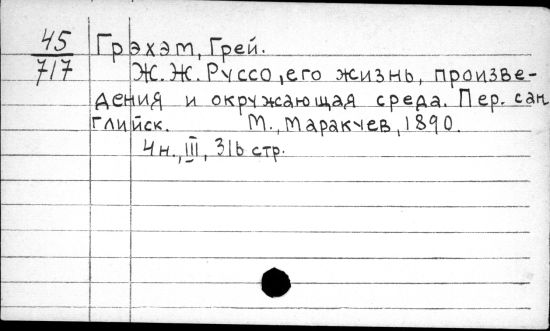 45 Грэхэм, Грей.
717 Ж. Ж. Руссо, его жизнь, произве-
дения и окружающая среда. Пер. с ан
глийск. М., Маракуев, 1890.
4н., III, 316 стр.